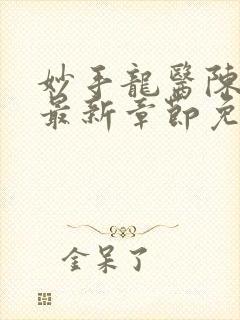 妙手龍醫陳
最新章節免
金呆了